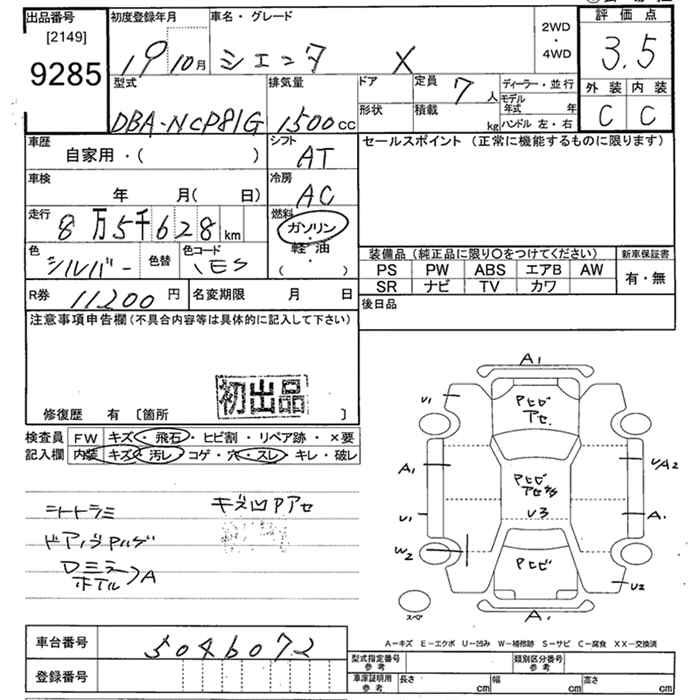 出品番号 初度登録年月 車名・グレード 2WD ・ 4WD 評価点
[2149]
9285 19 10月 シエンタ X 3.5
型式 排気量 ドア 定員 7人 ディーラー・並行 外装 内装
形状 積載 kg モデル年式 年
DBA-NCP81G 1500cc ハンドル 左・右 C C
車歴 シフト セールスポイント (正常に機能するものに限ります)
自家用・( ) AT
車検 冷房
年 月(日) AC
走行 8万5千628km 燃料 ガソリン・軽油・( )
色 シルバー 色替 色コード 1E5
装備品(純正品に限り○をつけてください) 新車保証書
PS PW ABS エアB AW 有・無
SR ナビ TV カワ
R券 11200円 名変期限 月 日 後日品
注意事項申告欄(不具合内容等は具体的に記入して下さい)
初出品
修復歴 有 [箇所 ]
検査員 FW キズ・飛石・ヒビ割・リペア跡・×要
記入欄 内装 キズ・汚レ・コゲ・穴・スレ・キレ・破レ
シートトラミ キズ凹Pアセ
ドアノブアルゲ
Dミラー
ホイル A
A1
Pヒビ
アセ
U1
U/A2
A1
Pヒビ
U3
U1
A1
W2
Pヒビ
U2
スペ
A1
A-キズ E-エクボ U-凹み W-補修跡 S-サビ C-腐食 XX-交換済
車台番号 5046072
型式指定番号 参考 類別区分番号 参考
登録番号
車庫証明用 参考 長さ cm 幅 cm 高さ cm